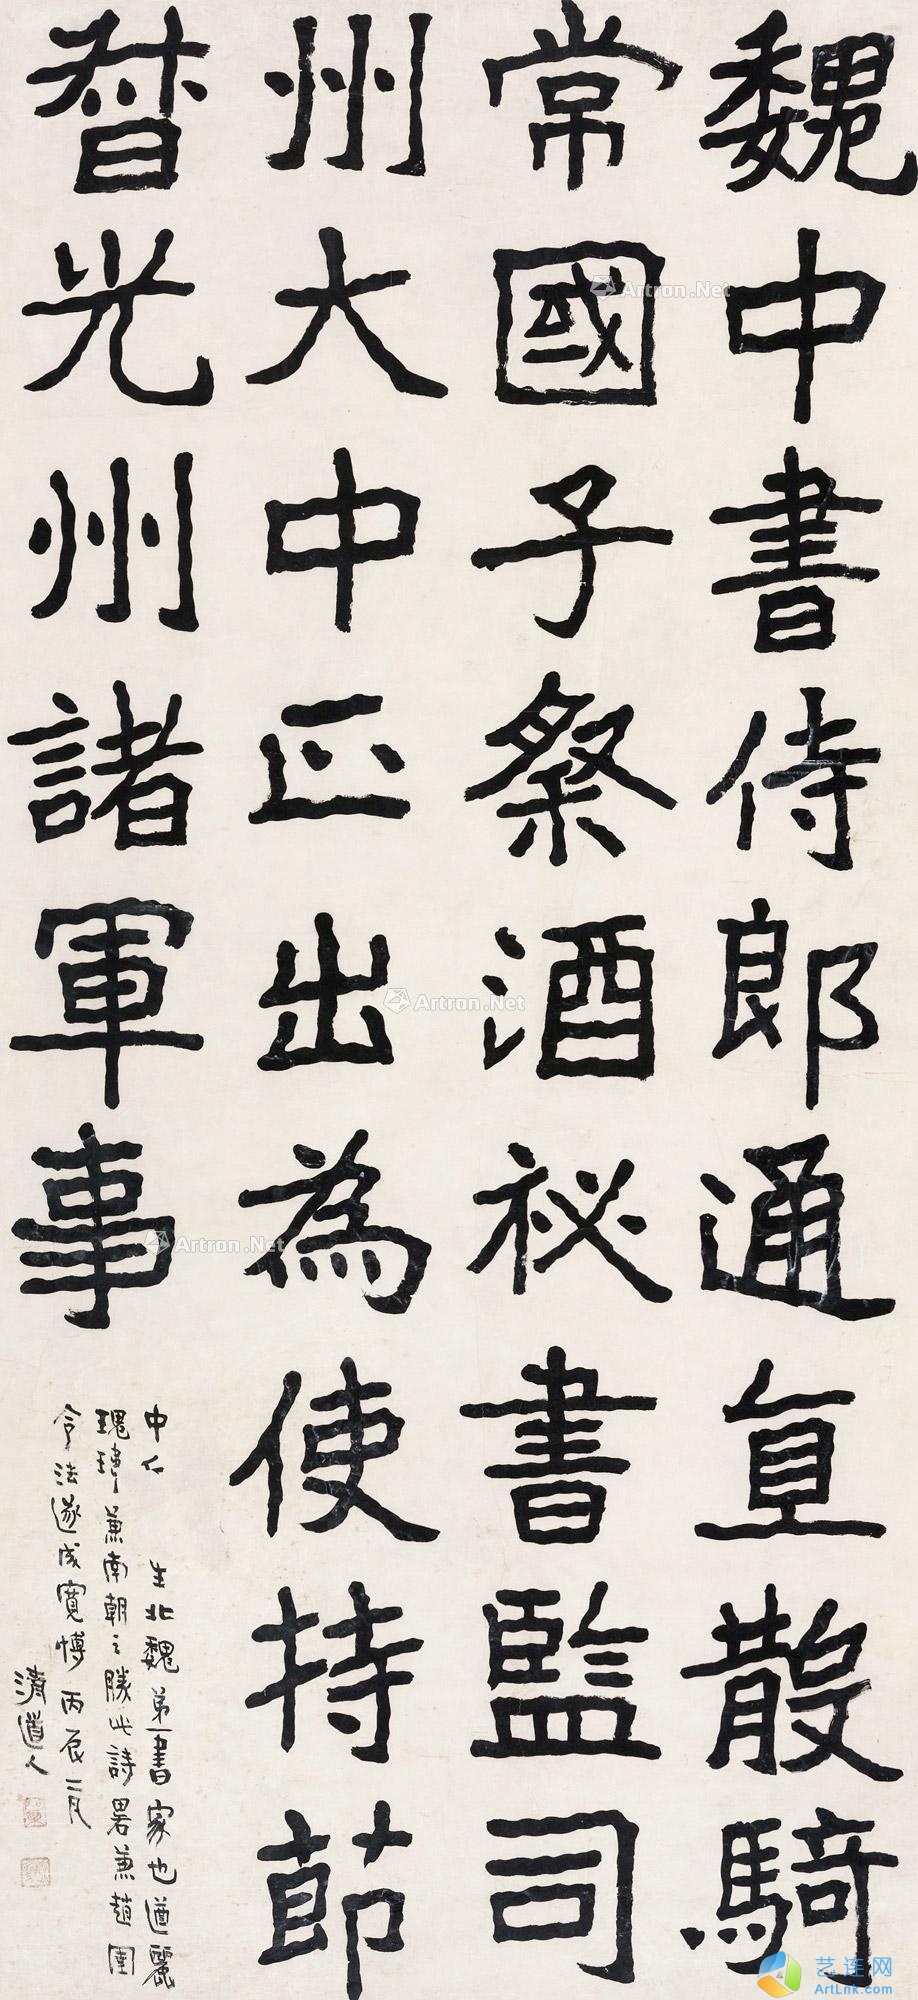 魏中書侍郎通直散騎
常國子祭酒祕書監司
州大中正出為使持節
督光州諸軍事
中仁 生北魏第一書家也遒麗
瑰瑋兼南朝之勝此詩畧兼趙圉
令法遂成寬博丙辰二月
清道人
Artron.Net
Artron.Net
Artron.Net
艺连网
ArtLnk.Com